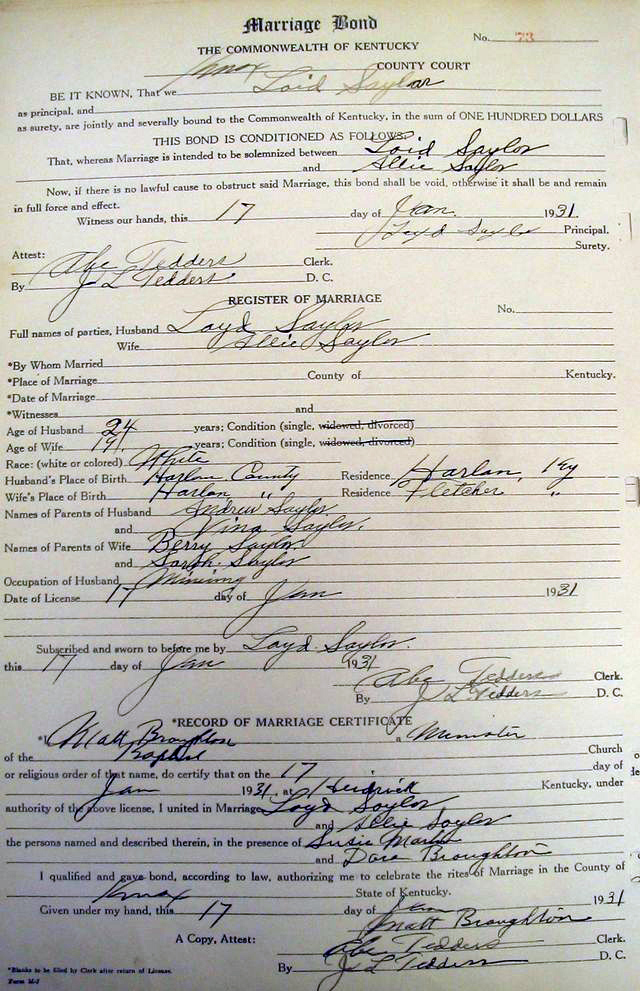 Marriage Bond
No. 73
THE COMMONWEALTH OF KENTUCKY
Knox COUNTY COURT
BE IT KNOWN, That we Loid Saylor
as principal, and
as surety, are jointly and severally bound to the Commonwealth of Kentucky, in the sum of ONE HUNDRED DOLLARS
THIS BOND IS CONDITIONED AS FOLLOWS:
That, whereas Marriage is intended to be solemnized between Loid Saylor
and Allie Saylor
Now, if there is no lawful cause to obstruct said Marriage, this bond shall be void, otherwise it shall be and remain
in full force and effect.
Witness our hands, this 17 day of Jan. 1931.
Loyd Saylor Principal.
Surety.
Attest:
Abe Tedders Clerk.
By J L Tedders D. C.
REGISTER OF MARRIAGE
No.
Full names of parties, Husband Loyd Saylor
Wife Allie Saylor
*By Whom Married
*Place of Marriage County of Kentucky.
*Date of Marriage
*Witnesses and
Age of Husband 24 years; Condition (single, widowed, divorced)
Age of Wife 19 years; Condition (single, widowed, divorced)
Race: (white or colored) White
Husband's Place of Birth Harlan County Residence Harlan, Ky
Wife's Place of Birth Harlan " Residence Fletcher "
Names of Parents of Husband Andrew Saylor
and Vina Saylor.
Names of Parents of Wife Berry Saylor
and Sarah Saylor
Occupation of Husband Mining
Date of License 17 day of Jan 1931
Subscribed and sworn to before me by Loyd Saylor.
this 17 day of Jan 1931
Abe Tedders Clerk.
By J L Tedders D. C.
*RECORD OF MARRIAGE CERTIFICATE
*I Matt Broughton a Minister
of the Baptist Church
or religious order of that name, do certify that on the 17 day of
Jan 1931, at Heidrick Kentucky, under
authority of the above license, I united in Marriage Loyd Saylor
and Allie Saylor
the persons named and described therein, in the presence of Susie Martin
and Dora Broughton
I qualified and gave bond, according to law, authorizing me to celebrate the rites of Marriage in the County of
Knox State of Kentucky.
Given under my hand, this 17 day of Jan 1931
Matt Broughton
A Copy, Attest: Abe Tedders Clerk.
By J L Tedders D. C.
*Blanks to be filed by Clerk after return of License.
Form M-1